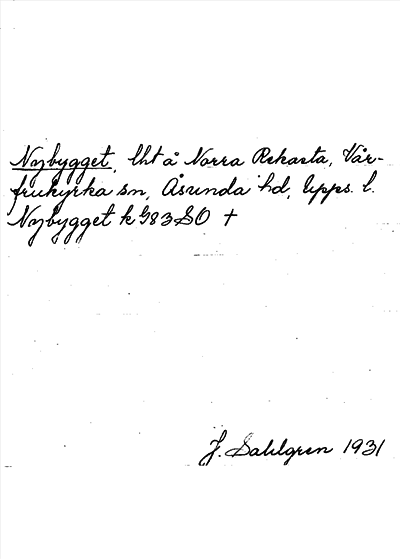 Nybygget, lht å Norra Rekasta, Vår-
frukyrka sn, Åsunda hd, Upps. l.
Nybygget k 983 SO +
J. Sahlgren 1931